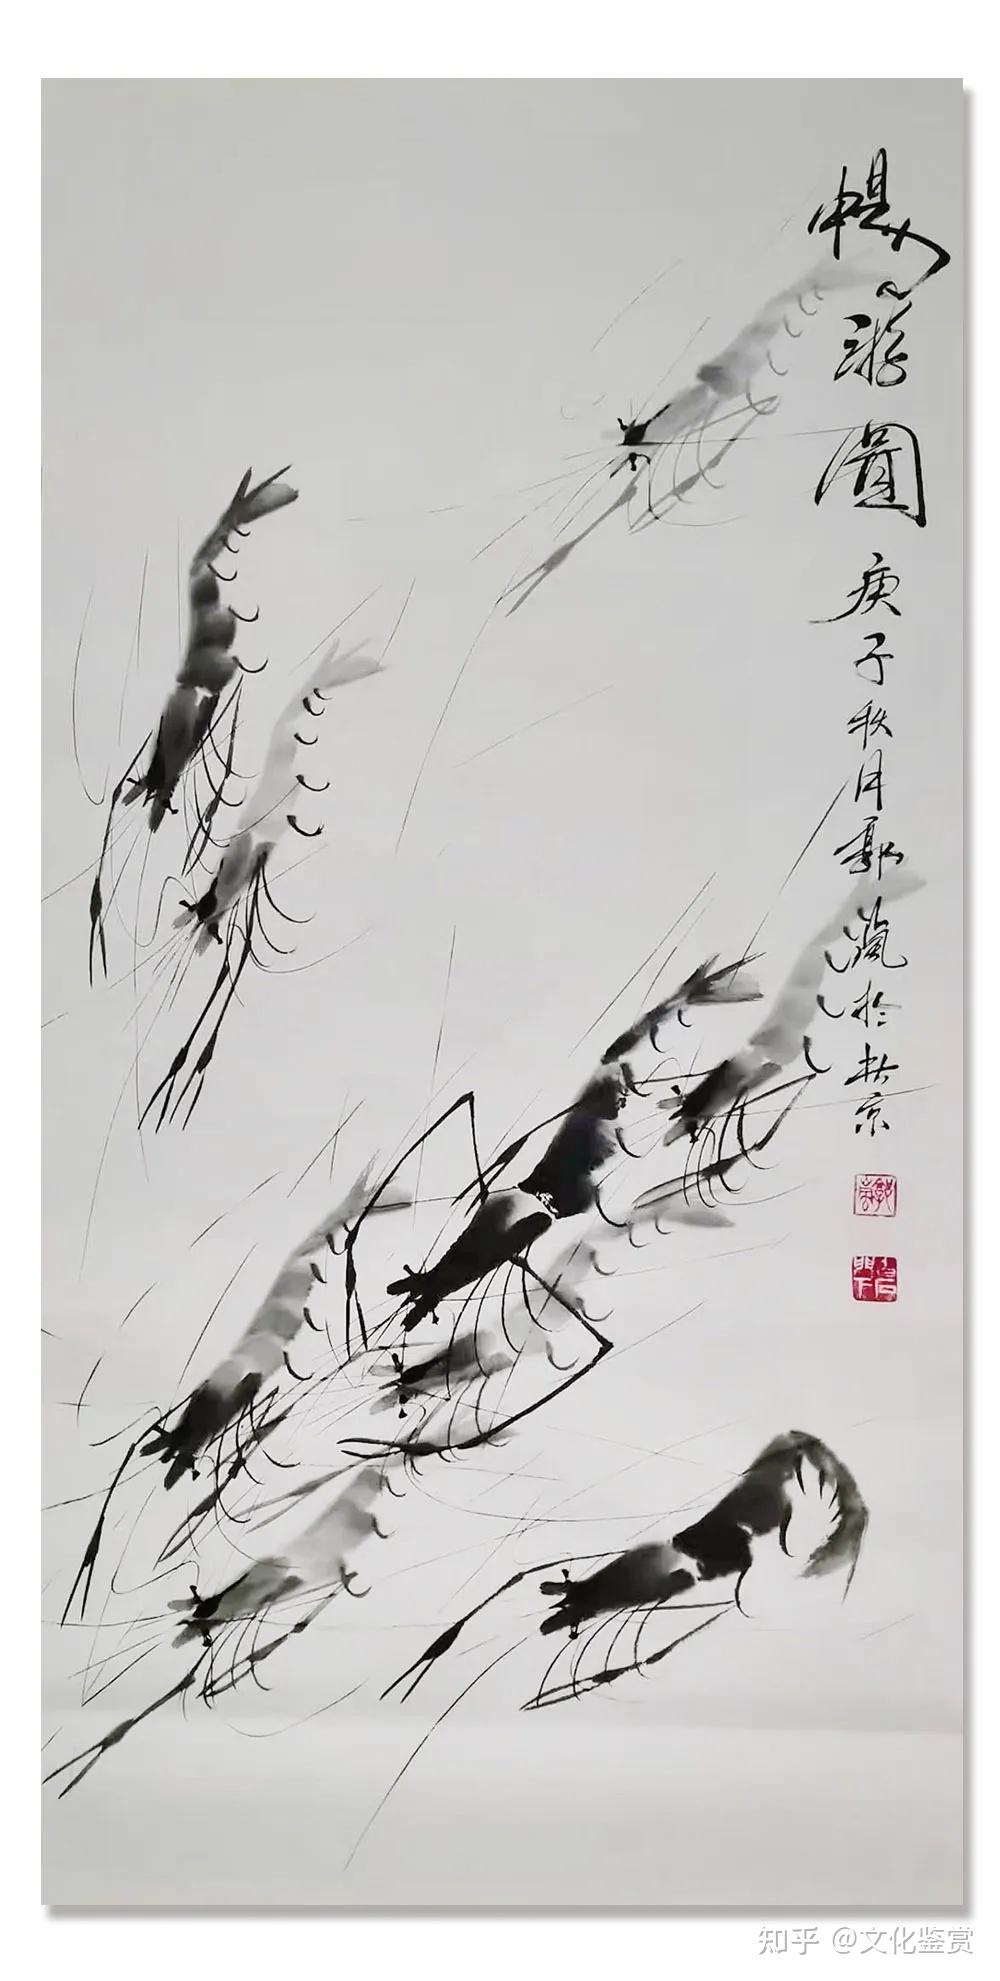 暢游圖 庚子秋月郭於北京
白石門下
知乎 @文化鉴赏